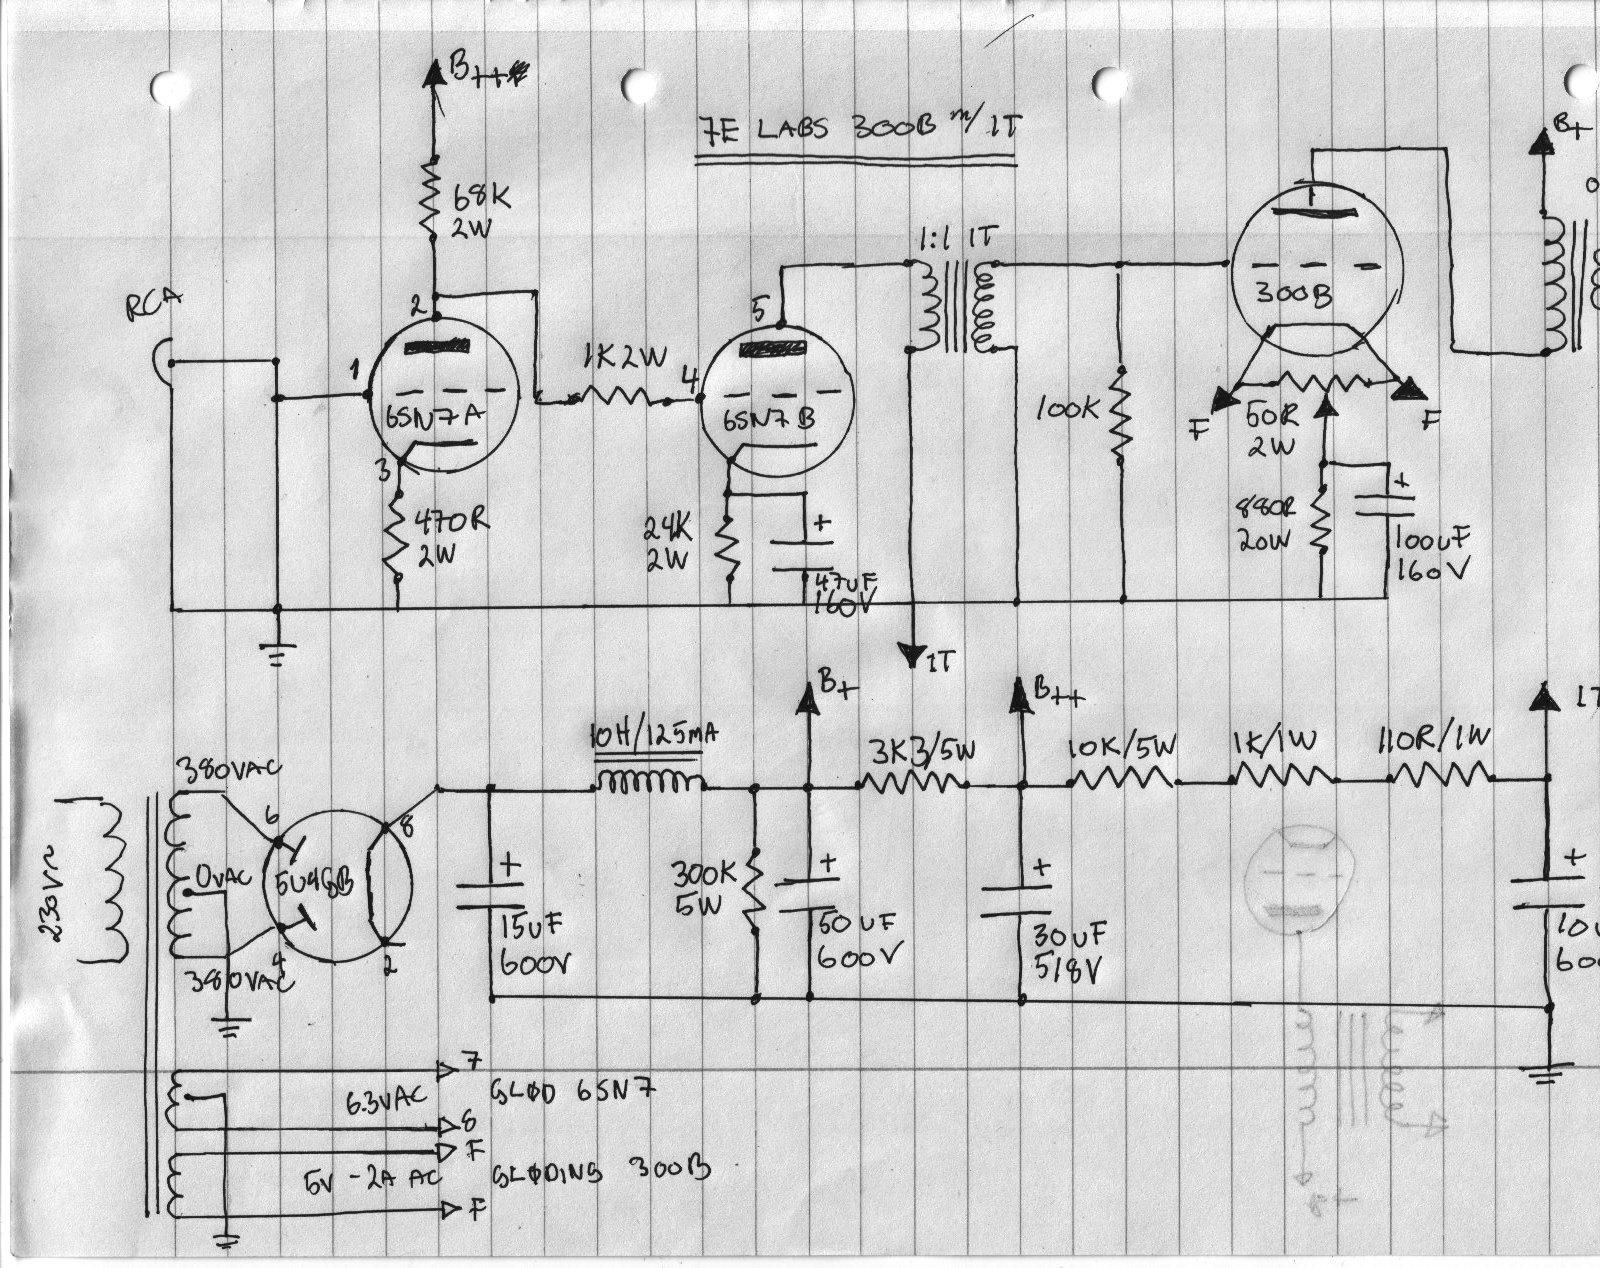 B++
7E LABS 300B m/ 1T
B+
68K
2W
1:1 1T
RCA
2
5
300B
1
1K 2W
4
6SN7 A
6SN7 B
100K
F
50R
2W
F
3
470R
2W
24K
2W
+
47uF
160V
880R
20W
+
100uF
160V
1T
B+
B++
1T
10H/125MA
3K3/5W
10K/5W
1K/1W
110R/1W
380VAC
6
8
230V~
0VAC
5U4GB
+
15uF
600V
300K
5W
+
50uF
600V
+
30uF
518V
+
10u
600
4
2
380VAC
7
6.3VAC
GLØD 6SN7
8
F
5V -2A AC
GLØDING 300B
F